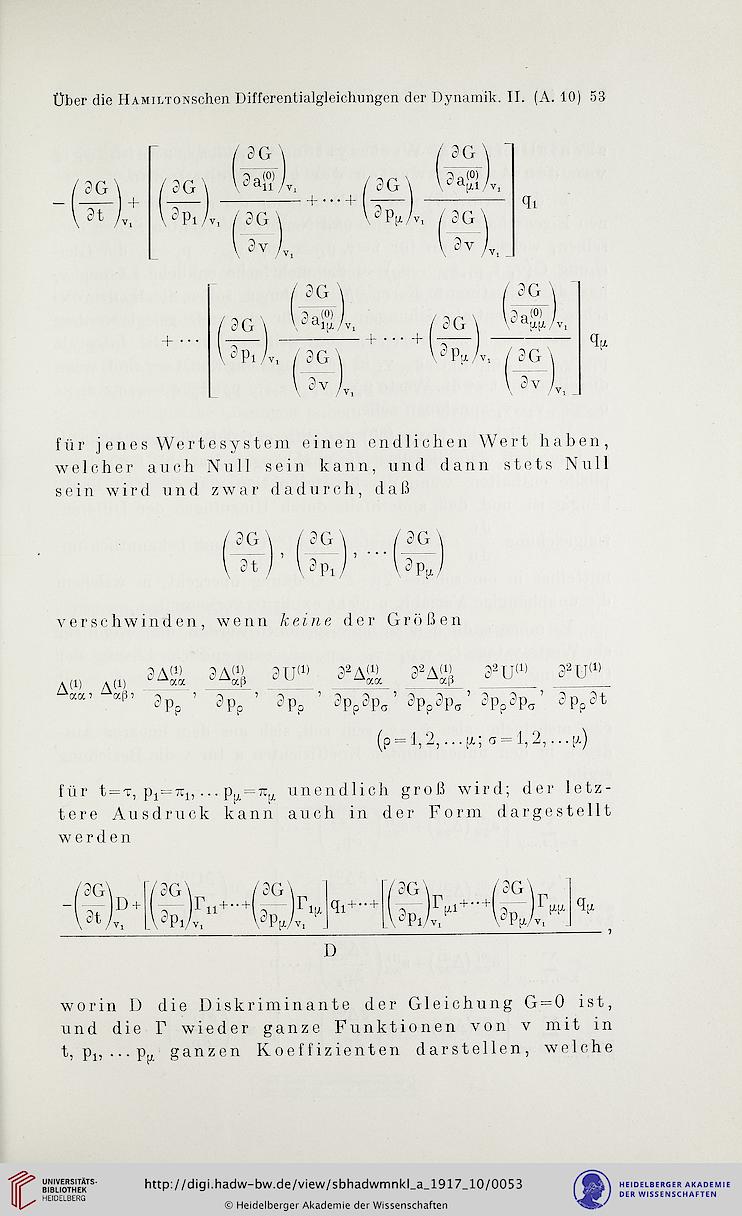 Über die HAMILTONschen Differentialgleichungen der Dynamik. II. (A. 10) 53
$-\left(\frac{\partial G}{\partial t}\right)_{v_1} + \left[\left(\frac{\partial G}{\partial p_1}\right)_{v_1} \frac{\left(\frac{\partial G}{\partial a_{11}^{(0)}}\right)_{v_1}}{\left(\frac{\partial G}{\partial v}\right)_{v_1}} + \cdots + \left(\frac{\partial G}{\partial p_\mu}\right)_{v_1} \frac{\left(\frac{\partial G}{\partial a_{\mu 1}^{(0)}}\right)_{v_1}}{\left(\frac{\partial G}{\partial v}\right)_{v_1}}\right] q_1$
$+ \cdots \left[\left(\frac{\partial G}{\partial p_1}\right)_{v_1} \frac{\left(\frac{\partial G}{\partial a_{1\mu}^{(0)}}\right)_{v_1}}{\left(\frac{\partial G}{\partial v}\right)_{v_1}} + \cdots + \left(\frac{\partial G}{\partial p_\mu}\right)_{v_1} \frac{\left(\frac{\partial G}{\partial a_{\mu\mu}^{(0)}}\right)_{v_1}}{\left(\frac{\partial G}{\partial v}\right)_{v_1}}\right] q_\mu$
für jenes Wertesystem einen endlichen Wert haben,
welcher auch Null sein kann, und dann stets Null
sein wird und zwar dadurch, daß
$\left(\frac{\partial G}{\partial t}\right), \left(\frac{\partial G}{\partial p_1}\right), \cdots \left(\frac{\partial G}{\partial p_\mu}\right)$
verschwinden, wenn keine der Größen
$\Delta_{\alpha\alpha}^{(1)}, \Delta_{\alpha\beta}^{(1)}, \frac{\partial \Delta_{\alpha\alpha}^{(1)}}{\partial p_\rho}, \frac{\partial \Delta_{\alpha\beta}^{(1)}}{\partial p_\rho}, \frac{\partial U^{(1)}}{\partial p_\rho}, \frac{\partial^2 \Delta_{\alpha\alpha}^{(1)}}{\partial p_\rho \partial p_\sigma}, \frac{\partial^2 \Delta_{\alpha\beta}^{(1)}}{\partial p_\rho \partial p_\sigma}, \frac{\partial^2 U^{(1)}}{\partial p_\rho \partial p_\sigma}, \frac{\partial^2 U^{(1)}}{\partial p_\rho \partial t}$
(ρ=1,2,...μ; σ=1,2,...μ)
für t=τ, p₁=π₁, ... p_μ=π_μ unendlich groß wird; der letz-
tere Ausdruck kann auch in der Form dargestellt
werden
$\frac{-\left(\frac{\partial G}{\partial t}\right)_{v_1} D + \left[\left(\frac{\partial G}{\partial p_1}\right)_{v_1} \Gamma_{11} + \cdots + \left(\frac{\partial G}{\partial p_\mu}\right)_{v_1} \Gamma_{1\mu}\right] q_1 + \cdots + \left[\left(\frac{\partial G}{\partial p_1}\right)_{v_1} \Gamma_{\mu 1} + \cdots + \left(\frac{\partial G}{\partial p_\mu}\right)_{v_1} \Gamma_{\mu\mu}\right] q_\mu}{D},$
worin D die Diskriminante der Gleichung G=0 ist,
und die Γ wieder ganze Funktionen von v mit in
t, p₁, ... p_μ ganzen Koeffizienten darstellen, welche
UNIVERSITÄTS-
BIBLIOTHEK
HEIDELBERG
http://digi.hadw-bw.de/view/sbhadwmnkl_a_1917_10/0053
© Heidelberger Akademie der Wissenschaften
HEIDELBERGER AKADEMIE
DER WISSENSCHAFTEN